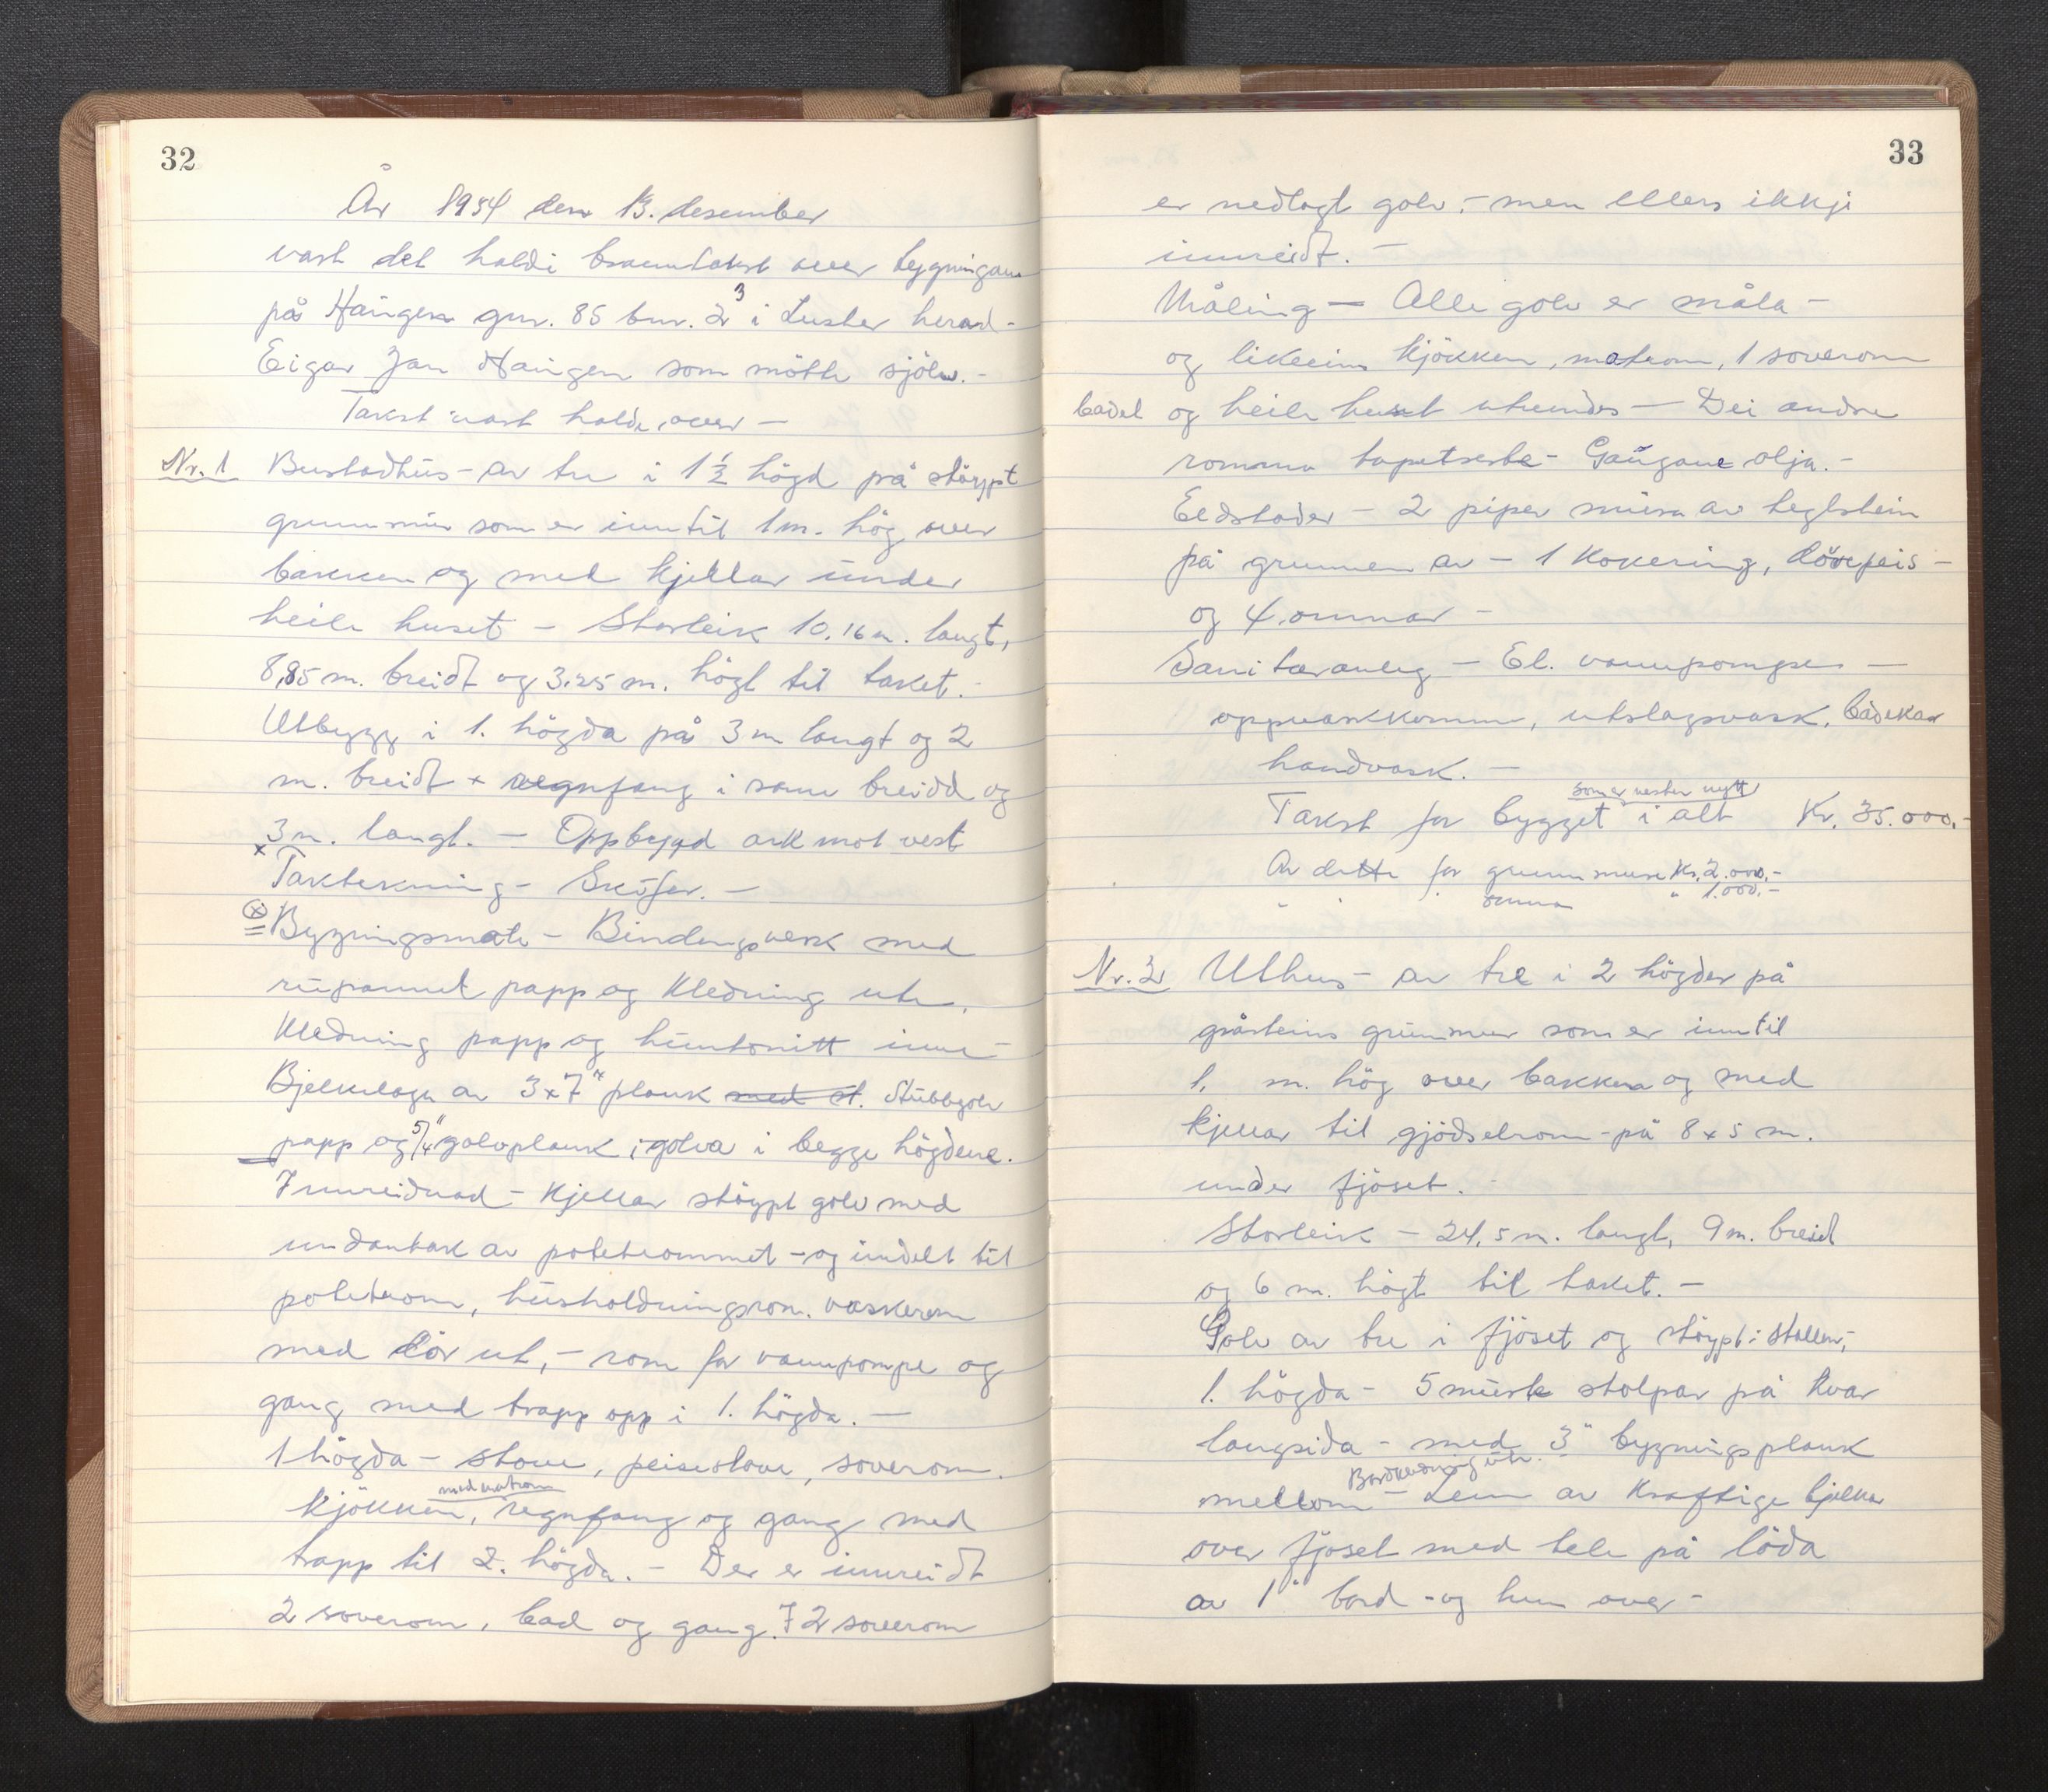 32
År 1954 den 13. desember
vart det haldi branntakst over bygningane
på Haugen gnr. 85 bnr. 2 3 i Luster herad -
Eigar Jan Haugen som mötte sjölv. -
Takst vart halde over —
Nr. 1 Bustadhus - av tre i 1 1/2 högd på stöypt
grunnmur som er inntil 1 m. hög over
bakken og med kjellar under
heile huset - Storleik 10.16 m. langt,
8,85 m. breidt og 3.25 m. högt til taket. -
Utbygg i 1. högda på 3 m langt og 2
m. breidt x regnfang i same breidd og
x 3 m. langt. — Oppbygd ark mot vest
Taktekning - Skifer. —
Bygningsmåte - Bindingsverk med
rupannel papp og kledning ute,
Kledning papp og huntonitt inne -
Bjelkelaga av 3x7" plank med st. Stubbgolv
papp og 5/4" golvplank i golva i begge högdene.
Innreidnad - Kjellar stöypt golv med
undantak av potetrommet - og indelt til
potetrom, husholdningsrom. vaskerom
med dör ut, - rom for vannpompe og
gang med trapp opp i 1. högda. —
1 högda - stove, peisestove, soverom.
kjökken, med matrom regnfang og gang med
trapp til 2. högda. - Der er innreidt
2 soverom, bad og gang. I 2 soverom
33
er nedlagt golv, - men ellers ikkje
innreidt. —
Måling — Alle golv er måla -
og likeeins kjökken, matrom, 1 soverom
badet og heile huset utvendes — Dei andre
romma tapetserte - Gangane olja. -
Eldstader - 2 piper mura av teglstein
på grunnen av - 1 Kokering, dövepeis -
og 4 omnar -
Sanitæranleg - El. vannpompe —
oppvaskkomm, utslagsvask, badekar
handvask. —
som er nesten nytt
Takst for bygget i alt Kr. 35.000.-
Av dette for grunnmur Kr. 2.000,-
" " " omna " 1.000,-
Nr. 2 Uthus - av tre i 2 högder på
gråsteins grunnmur som er inntil
1. m. hög over bakken og med
kjellar til gjödselrom - på 8 x 5 m.
under fjöset. -
Storleik - 24,5 m. langt, 9 m. breid
og 6 m. högt til taket. -
Golv av tre i fjöset og stöypt i stallen, -
1. högda - 5 murte stolpar på kvar
langsida - med 3" bygningsplank
mellom - Bordkledning ute. Lem av kraftige bjelkar
over fjöset med tele på löda
av 1" bord - og hun over -